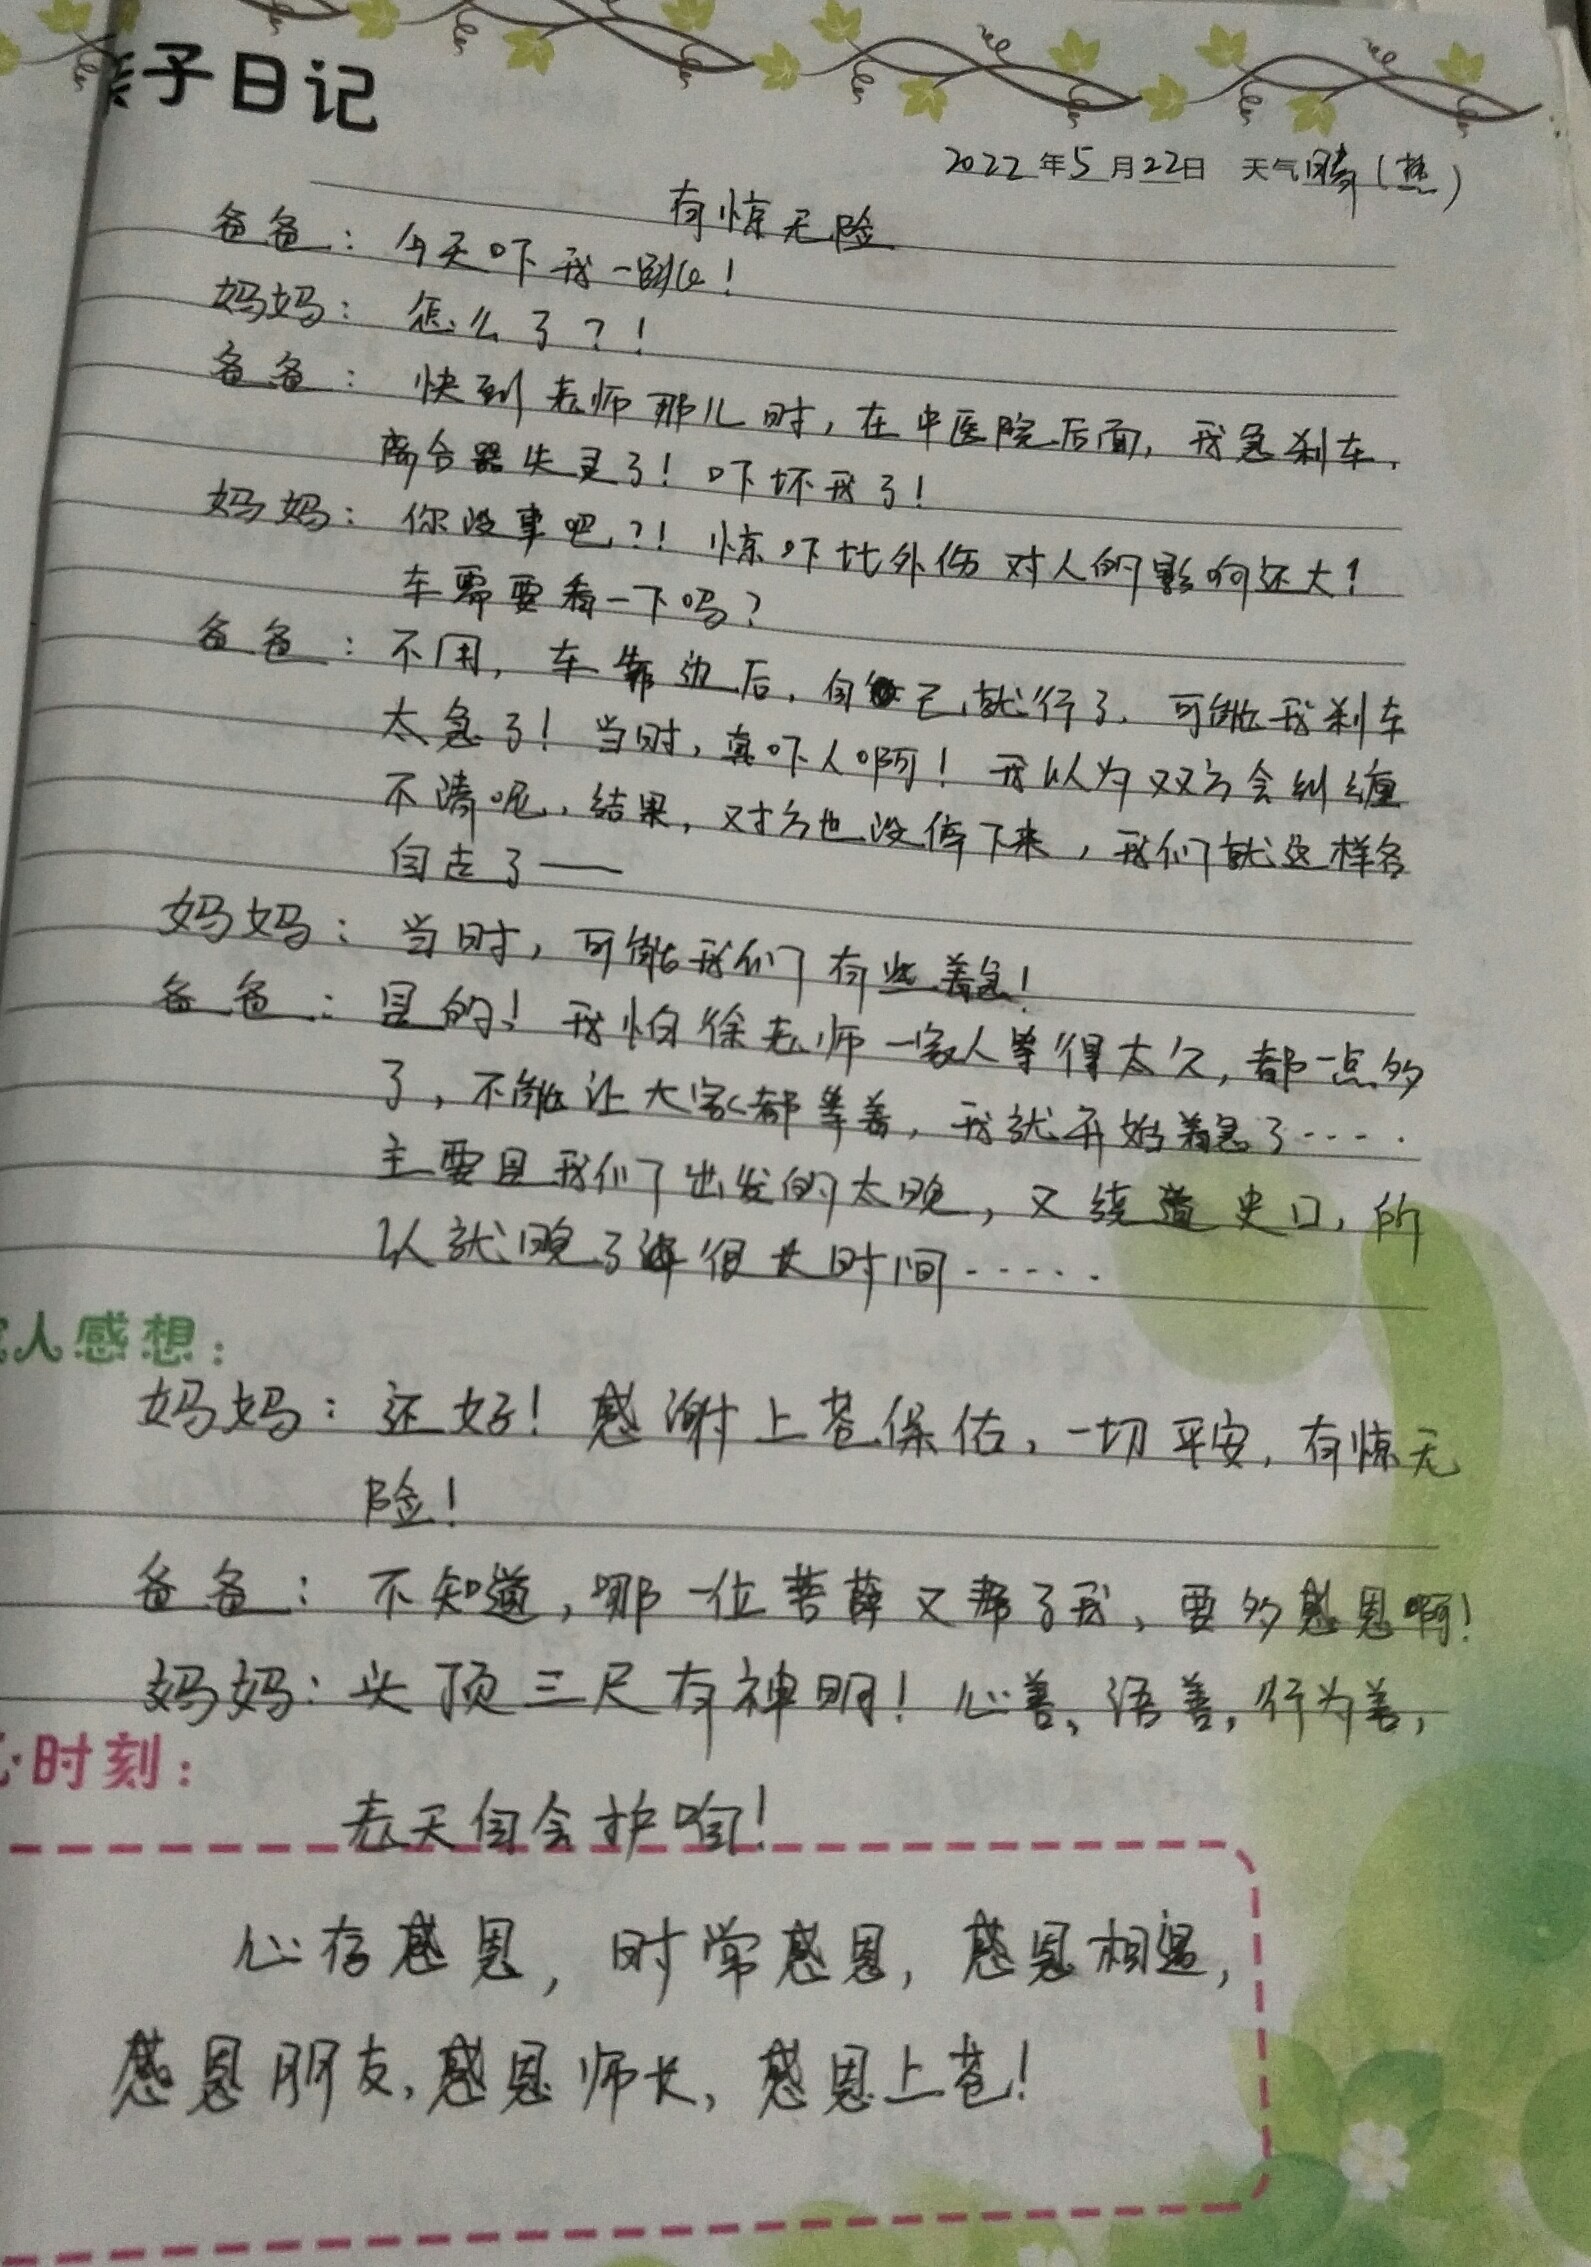 亲子日记
2022年5月22日 天气晴(热)
有惊无险
爸爸:今天吓我一跳!
妈妈:怎么了?!
爸爸:快到老师那儿时,在中医院后面,我急刹车,
离合器失灵了!吓坏我了!
妈妈:你没事吧?!惊吓比外伤对人的影响还大!
车需要看一下吗?
爸爸:不用,车靠边后,自己就行了.可能我刹车
太急了!当时,真吓人啊!我以为双方会纠缠
不清呢,结果,对方也没停下来,我们就这样各
自走了——
妈妈:当时,可能我们有些着急!
爸爸:是的!我怕徐老师一家人等得太久,都一点多
了,不能让大家都等着,我就开始着急了……
主要是我们出发的太晚,又绕道史口,所
以就晚了很长时间……
家人感想:
妈妈:还好!感谢上苍保佑,一切平安,有惊无
险!
爸爸:不知道,哪一位菩萨又帮了我,要多感恩啊!
妈妈:头顶三尺有神明!心善、语善,行为善,
心时刻:
老天自会护咱!
心存感恩,时常感恩,感恩相遇,
感恩朋友,感恩师长,感恩上苍!